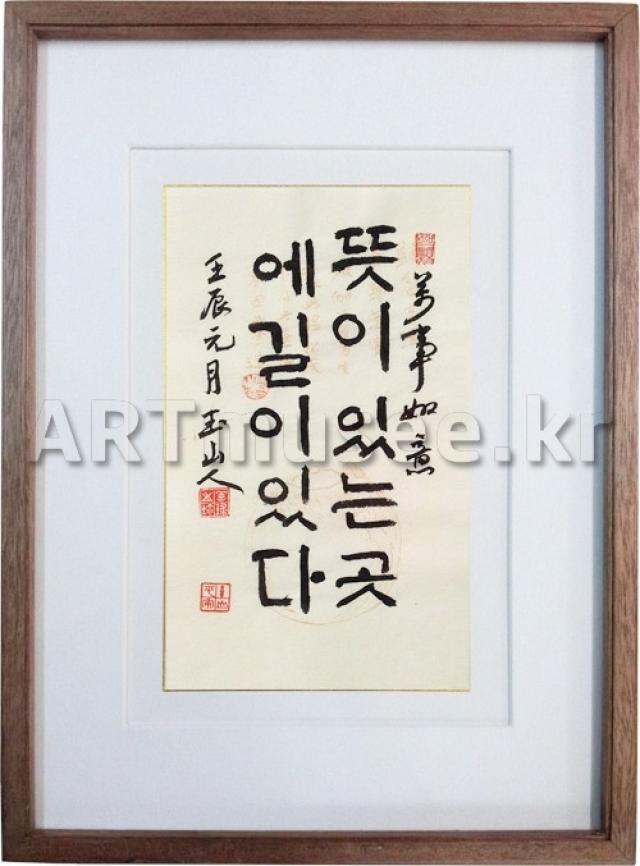 萬事如意
뜻이있는곳
에길이있다
壬辰元月 玉山人
ARTmusee.kr